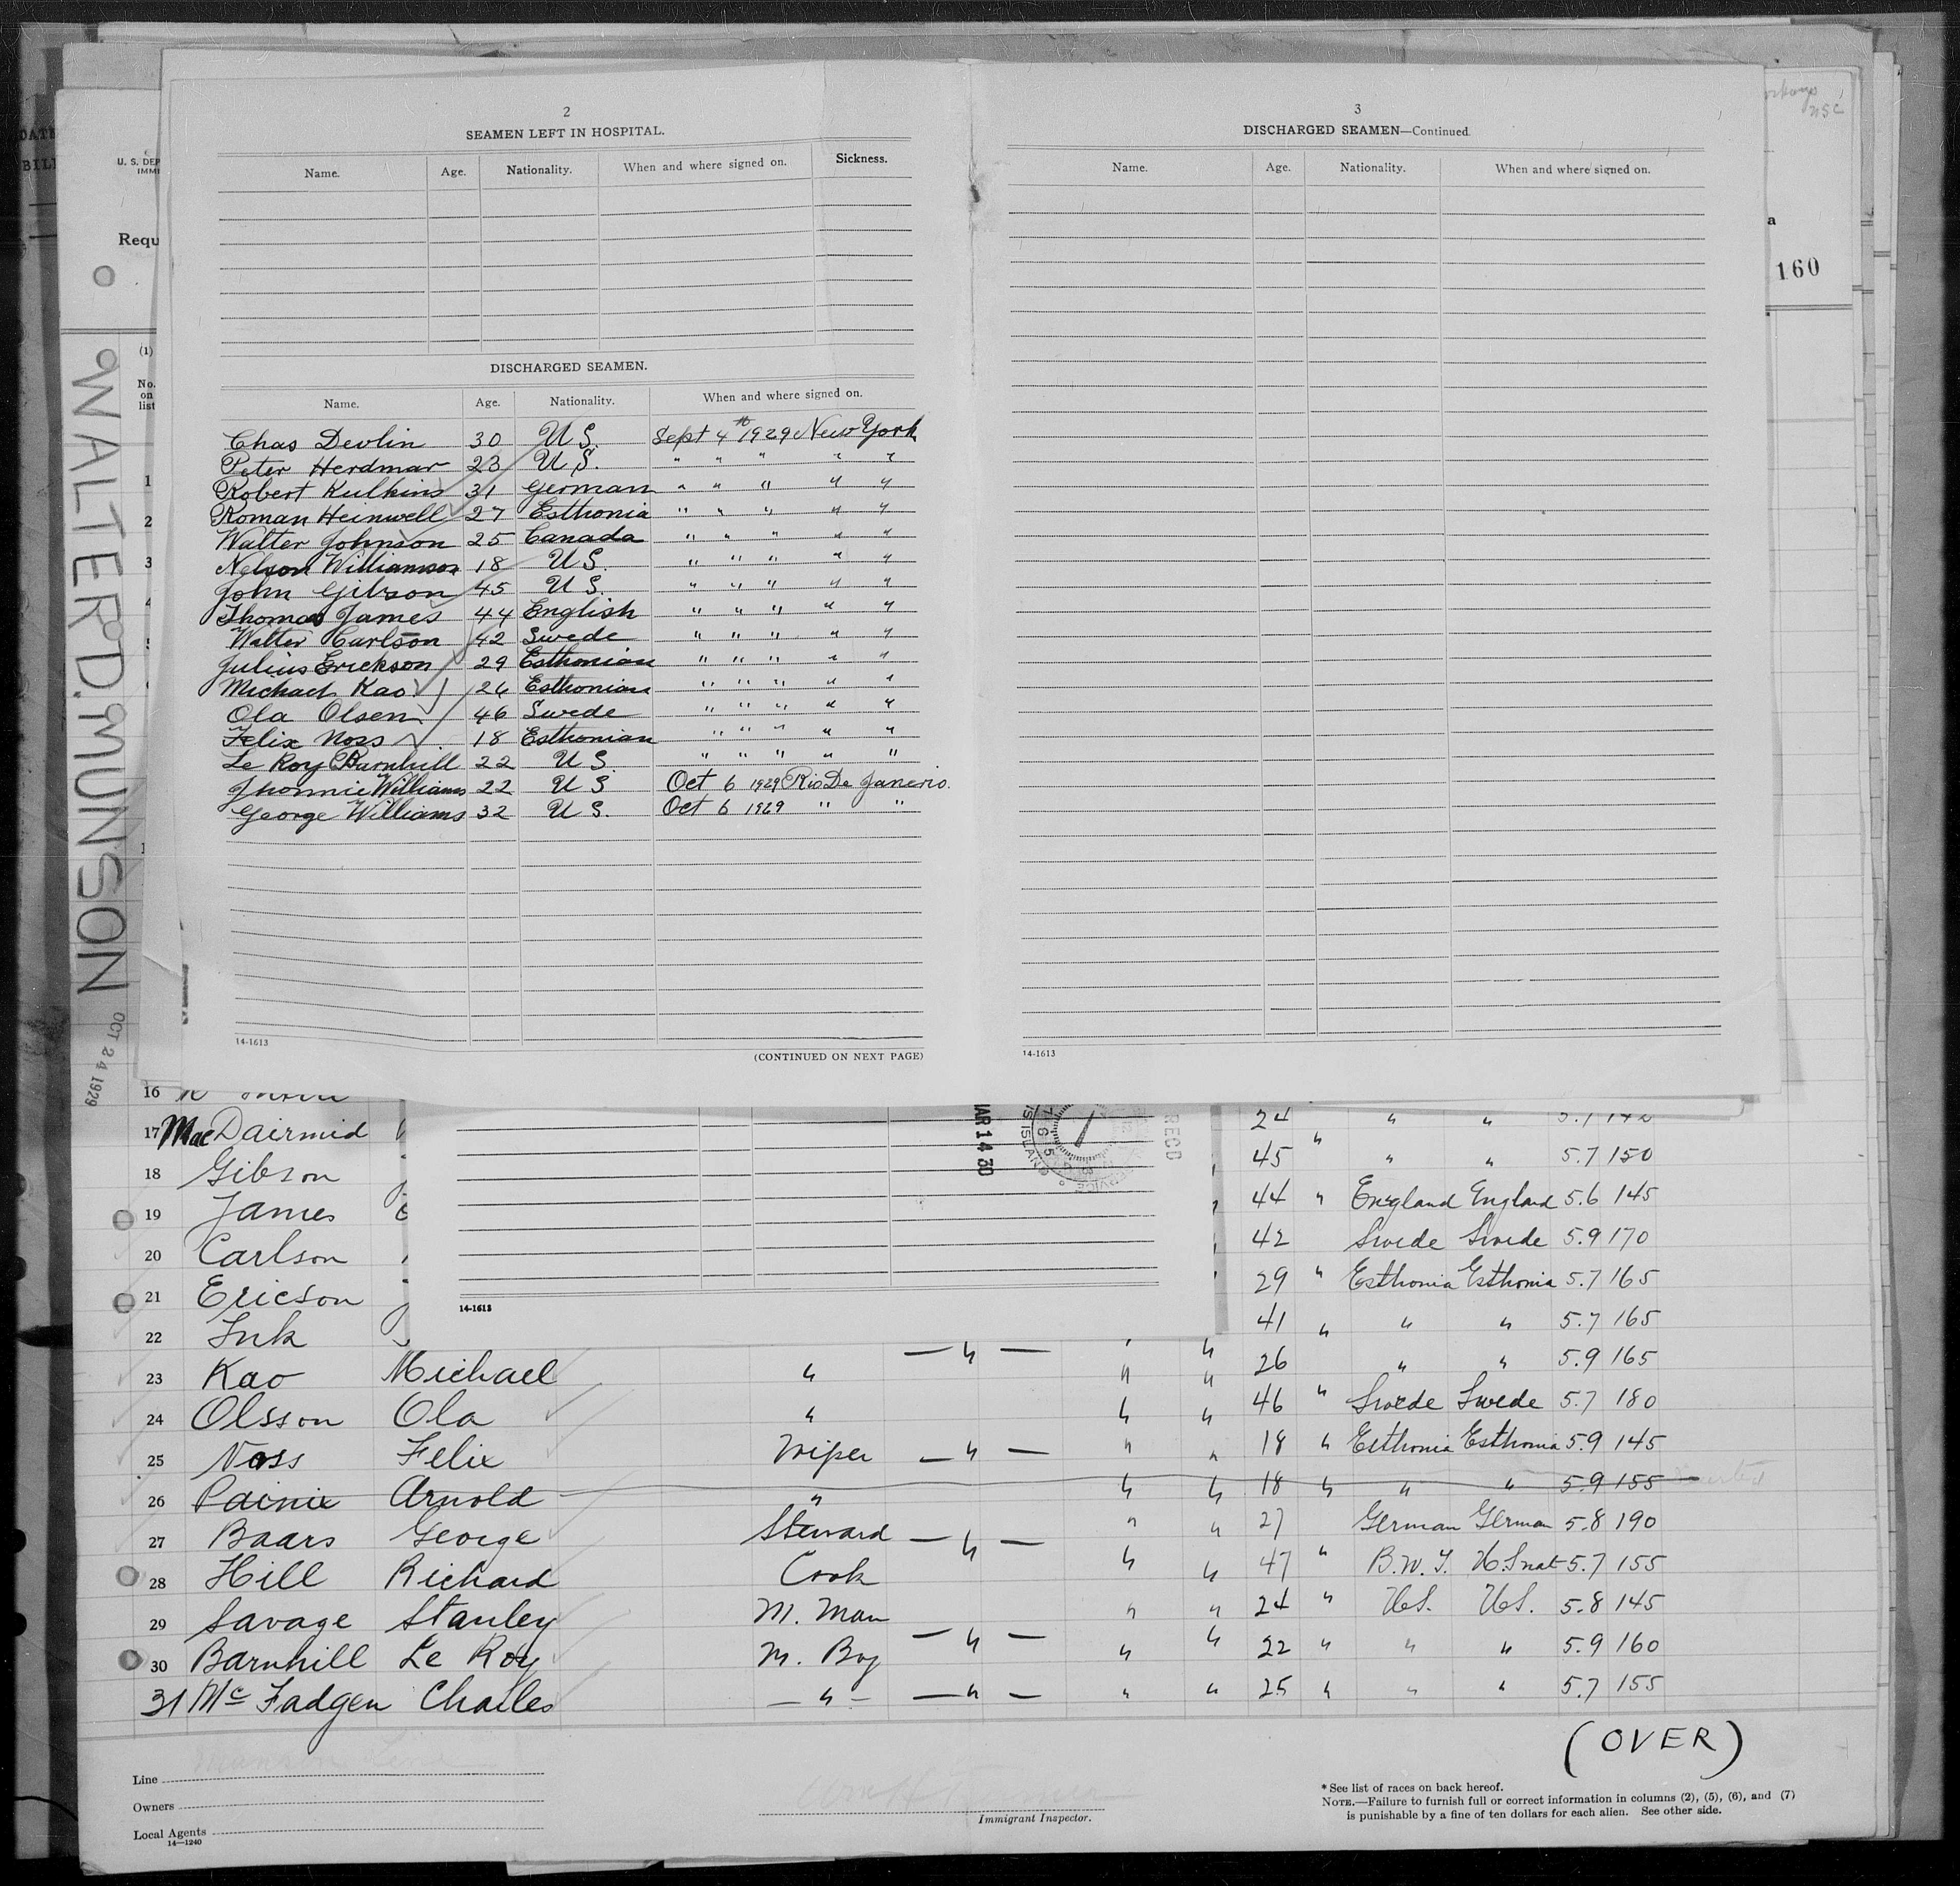 2
SEAMEN LEFT IN HOSPITAL.
Name. Age. Nationality. When and where signed on. Sickness.
DISCHARGED SEAMEN.
Name. Age. Nationality. When and where signed on.
Chas Devlin 30 U S. Sept 4th 1929 New York
Peter Herdmar 23 U S. " " " " "
Robert Kulkins 31 German " " " " "
Roman Heinwell 27 Esthonia " " " " "
Walter Johnson 25 Canada " " " " "
Nelson Williamson 18 U S. " " " " "
John Gibson 45 U S. " " " " "
Thomas James 44 English " " " " "
Walter Carlson 42 Swede " " " " "
Julius Erickson 29 Esthonian " " " " "
Michael Kao 26 Esthonian " " " " "
Ola Olsen 46 Swede " " " " "
Felix Noss 18 Esthonian " " " " "
Le Roy Barnhill 22 U S " " " " "
Jhonnie Williams 22 U S Oct 6 1929 Rio De Janerio.
George Williams 32 U S. Oct 6 1929 " "
14-1613
(CONTINUED ON NEXT PAGE)
3
DISCHARGED SEAMEN—Continued.
Name. Age. Nationality. When and where signed on.
14-1613
U. S. DEP
IMMI
Requ
(1)
No.
on
list
1
2
3
a
160
WALTER D. MUNSON
OCT 24 1929
MAR 14 30
RECD
14-1613
16 24 " "
17 MacDairmid 45 " " " 5.7 150
18 Gibson 44 " England England 5.6 145
19 James 42 Swede Swede 5.9 170
20 Carlson 29 " Esthonia Esthonia 5.7 165
21 Ericson 41 " " " 5.7 165
22 Ink 26 " " 5.9 165
23 Kao Michael " 46 " Swede Swede 5.7 180
24 Olsson Ola " 18 " Esthonia Esthonia 5.9 145
25 Noss Felix Wiper — " — 18 " " " 5.9 155
26 Painix Arnold " 27 German German 5.8 190
27 Baars George Steward — " — 47 " B.W.I. U.S nat 5.7 155
28 Hill Richard Cook 24 " U.S. U.S. 5.8 145
29 Savage Stanley M. Man — " — 22 " " " 5.9 160
30 Barnhill Le Roy M. Boy 25 " " " 5.7 155
31 Mc Fadgen Charles — " — — " —
(OVER)
Line
Owners
Local Agents
14—1240
Immigrant Inspector.
* See list of races on back hereof.
NOTE.—Failure to furnish full or correct information in columns (2), (5), (6), and (7)
is punishable by a fine of ten dollars for each alien. See other side.